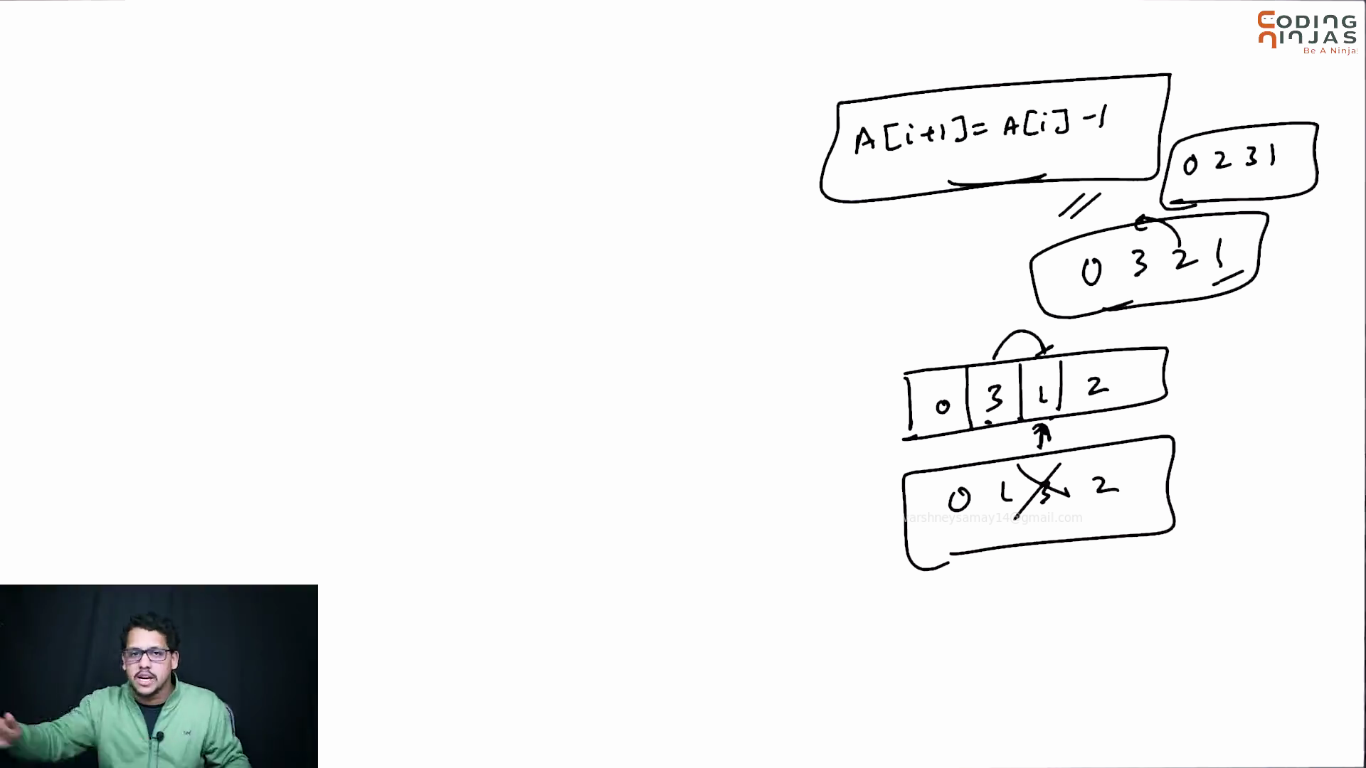 CODING
NINJAS
Be A Ninja
A[i+1] = A[i] - 1
0 2 3 1
0 3 2 1
0 3 1 2
0 1 3 2
varshneysamay14@gmail.com